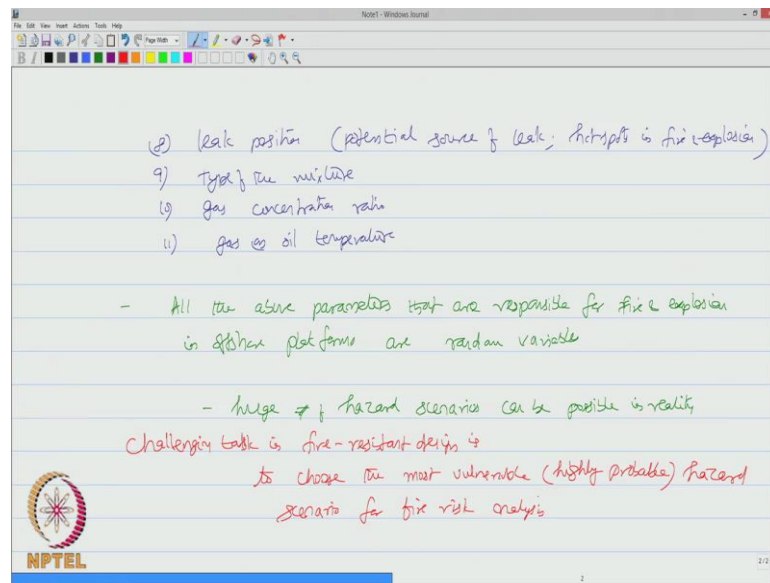 Note1 - Windows Journal
File Edit View Insert Actions Tools Help
Page Width
B I
(8) leak position (potential source of leak, hotspots in fire & explosion)
9) type of the mixture
10) gas concentration ratio
11) gas or oil temperature
- All the above parameters that are responsible for fire & explosion
in offshore platforms are random variable
- huge # of hazard scenarios can be possible in reality
Challenging task in fire-resistant design is
to choose the most vulnerable (highly probable) hazard
scenario for fire risk analysis
NPTEL
2
2/2